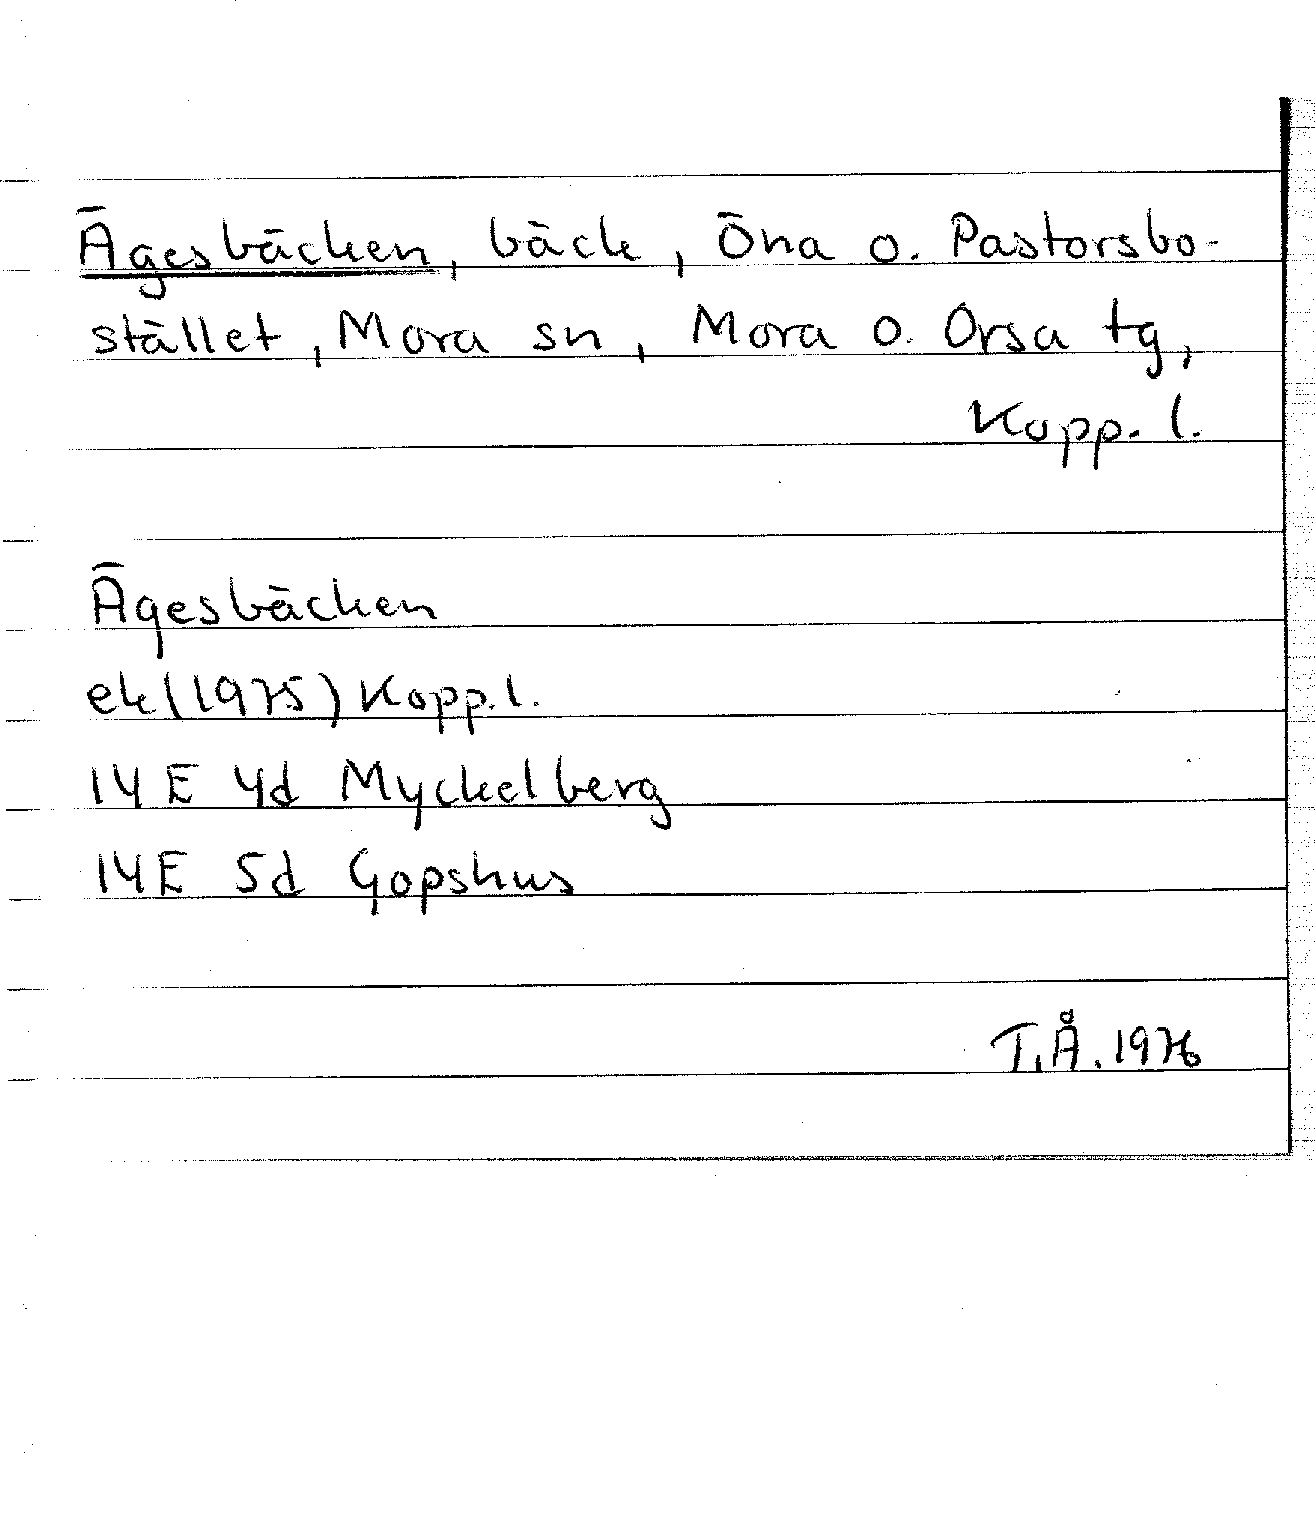 Ägesbäcken, bäck, Öna o. Pastorsbo-
stället, Mora sn, Mora o. Orsa tg,
Kopp. l.
Ägesbäcken
ek (1975) Kopp. l.
14 E 4d Myckelberg
14 E 5d Gopshus
T.Å. 1976